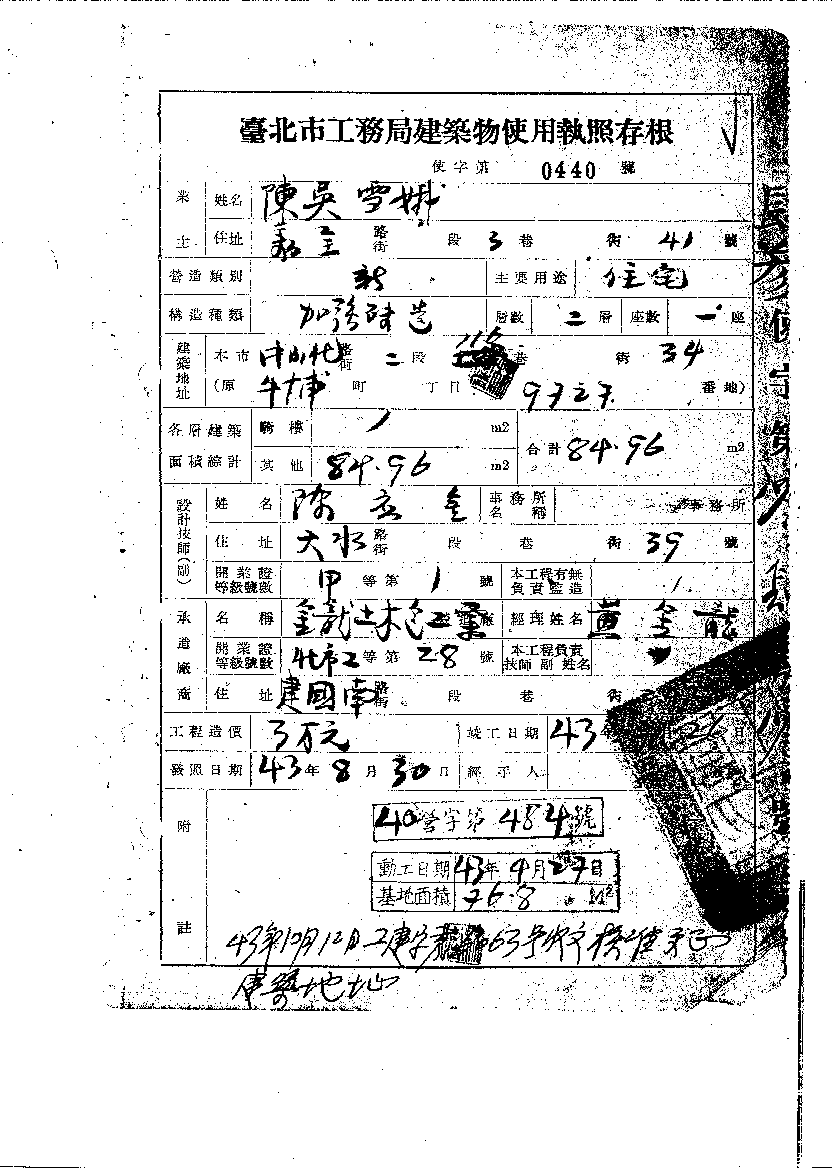 臺北市工務局建築物使用執照存根
使字第 0440 號
業主 姓名 陳吳雪
住址 路街 段 3 巷 衖 41 號
營造類別 新 主要用途 住宅
構造種類 加強磚造 層數 二層 座數 一座
建築地址 本市 中山北路街 二段 巷 衖 34
(原 町 丁目 9727 番地)
各層建築面積綜計 騎樓 / m2 合計 84.96 m2
其他 84.96 m2
設計技師(副) 姓名 陳 金 事務所名稱 事務所
住址 大水路街 段 巷 衖 39 號
開業證等級號數 甲等第 1 號 本工程有無負責監造 /
承造廠商 名稱 金龍土木包工業 經理姓名 黃金龍
開業證等級號數 北市工等第 28 號 本工程負責技師副姓名
住址 建國南路街 段 巷 衖
工程造價 3万元 竣工日期 43年 26日
發照日期 43年8月30日 經手人
附註
40營字第 484號
動工日期 43年4月27日
基地面積 76.8 M2
43年10月12日工建字第 63号 文核准 正
建築地址